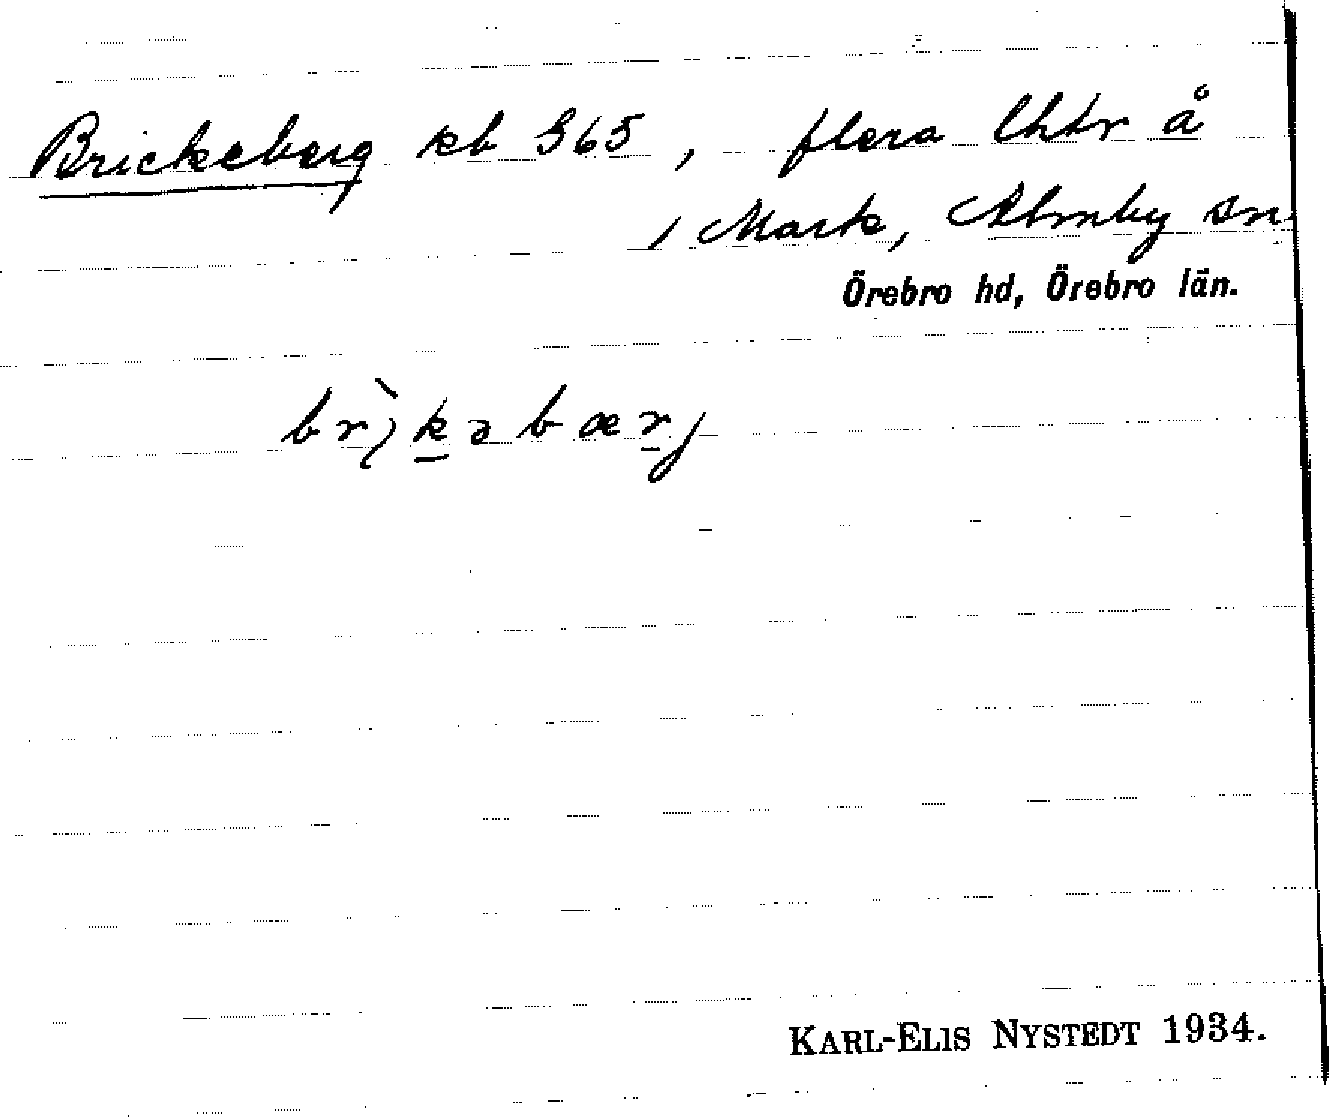 Brickeberg kb 365, flera lhtr å
/ Mark, Almby sn
Örebro hd, Örebro län.
brìkəbærj
KARL-ELIS NYSTEDT 1934.